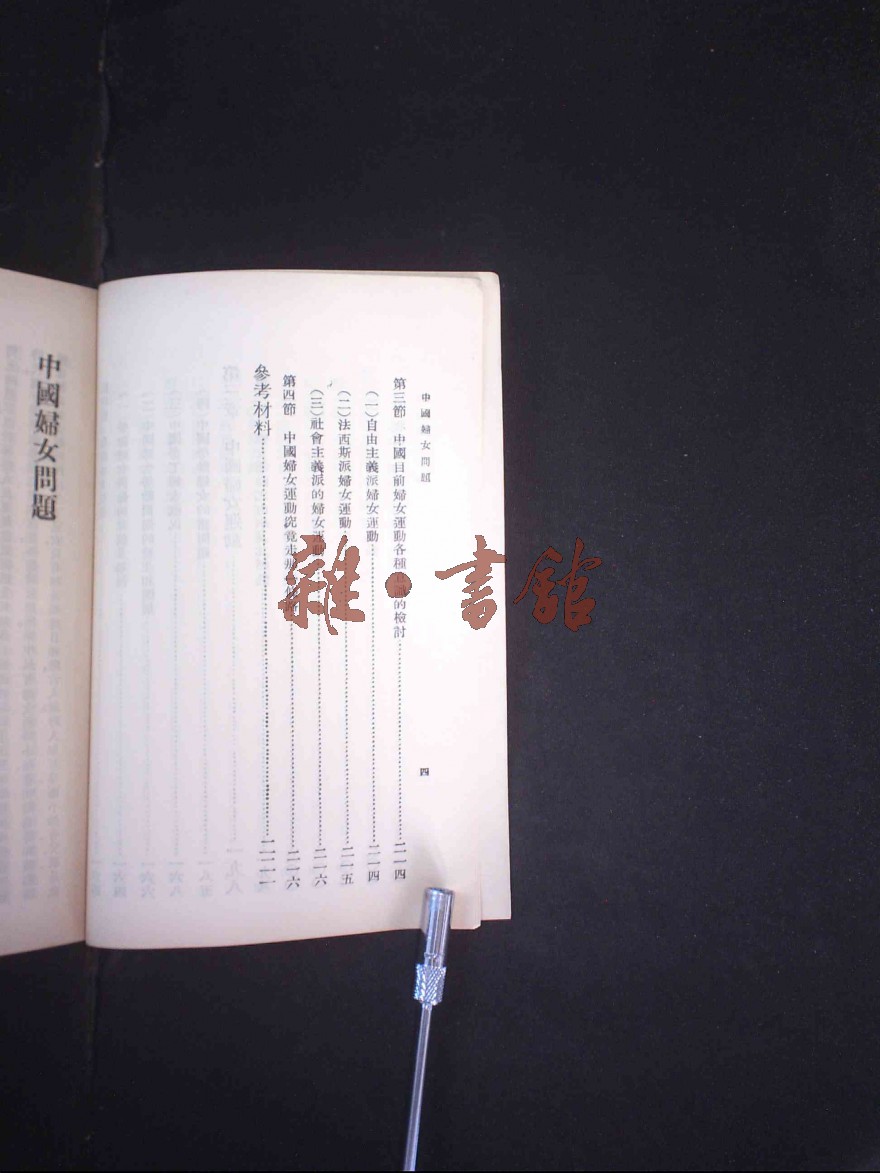 中國婦女問題
四
第三節 中國目前婦女運動各種 的檢討……二一四
（一）自由主義派婦女運動……二一四
（二）法西斯派婦女運動……二一五
（三）社會主義派的婦女運動……二一六
第四節 中國婦女運動究竟走……二一六
參考材料……
中國婦女問題
雜·書館